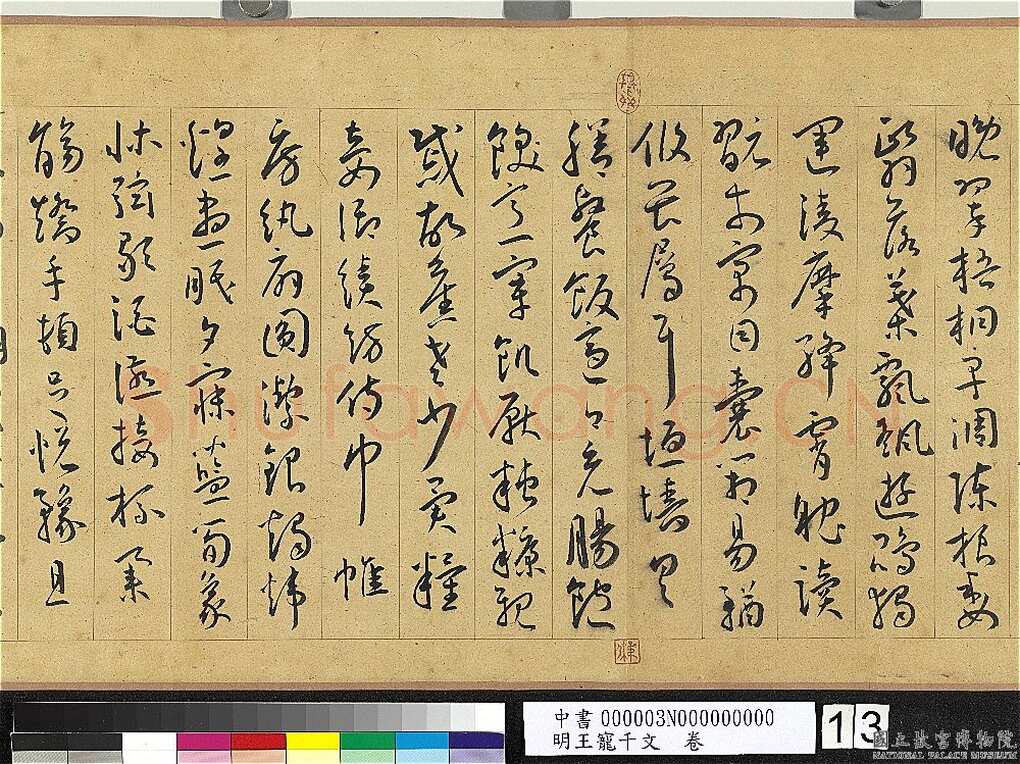 晚翠梧桐早凋陳根委
翳落葉飄颻遊鵾獨
運凌摩絳霄耽讀
翫市寓目囊箱易輶
攸畏屬耳垣牆具
膳飡飯適口充腸飽
飫烹宰飢厭糟糠親
戚故舊老少異糧
妾御績紡侍巾帷
房紈扇圓潔銀燭煒
煌晝眠夕寐藍筍象
床弦歌酒讌接杯舉
觴矯手頓足悅豫且
Shufawang.CN
中書000003N000000000
明王寵千文 卷
13
國立故宮博物院
NATIONAL PALACE MUSEUM